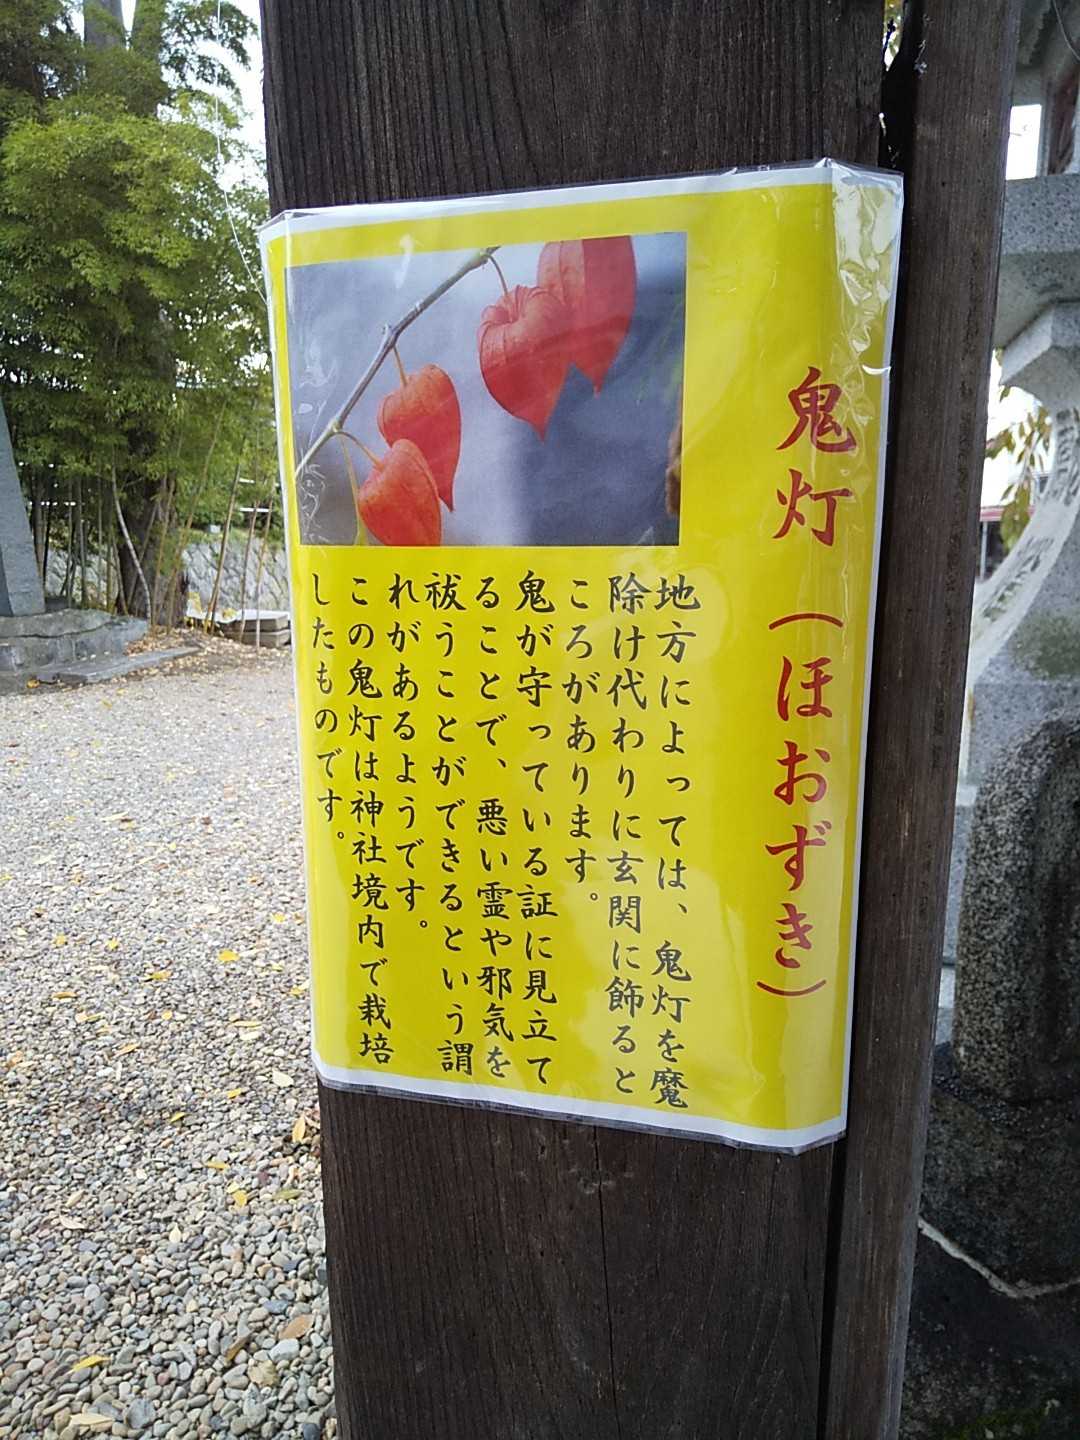 鬼灯（ほおずき）
地方によっては、鬼灯を魔
除け代わりに玄関に飾ると
ころがあります。
鬼が守っている証に見立て
ることで、悪い霊や邪気を
祓うことができるという謂
れがあるようです。
この鬼灯は神社境内で栽培
したものです。